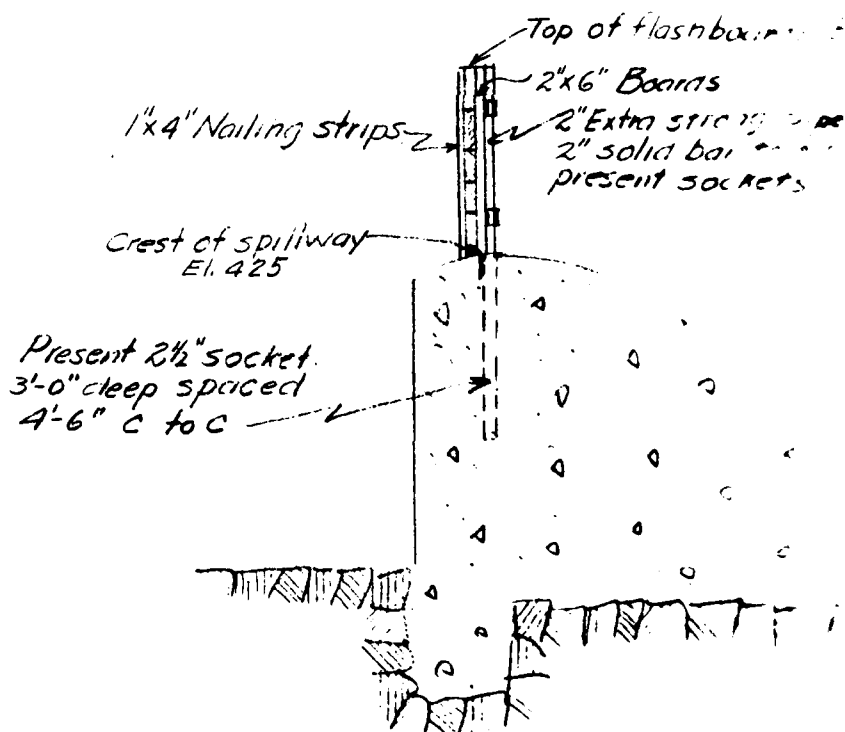 Top of flashboar
2"x6" Boards
1"x4" Nailing strips
2" Extra strong
2" solid bar
present sockets
Crest of spillway
El. 425
Present 2½" socket
3'-0" deep spaced
4'-6" C to C